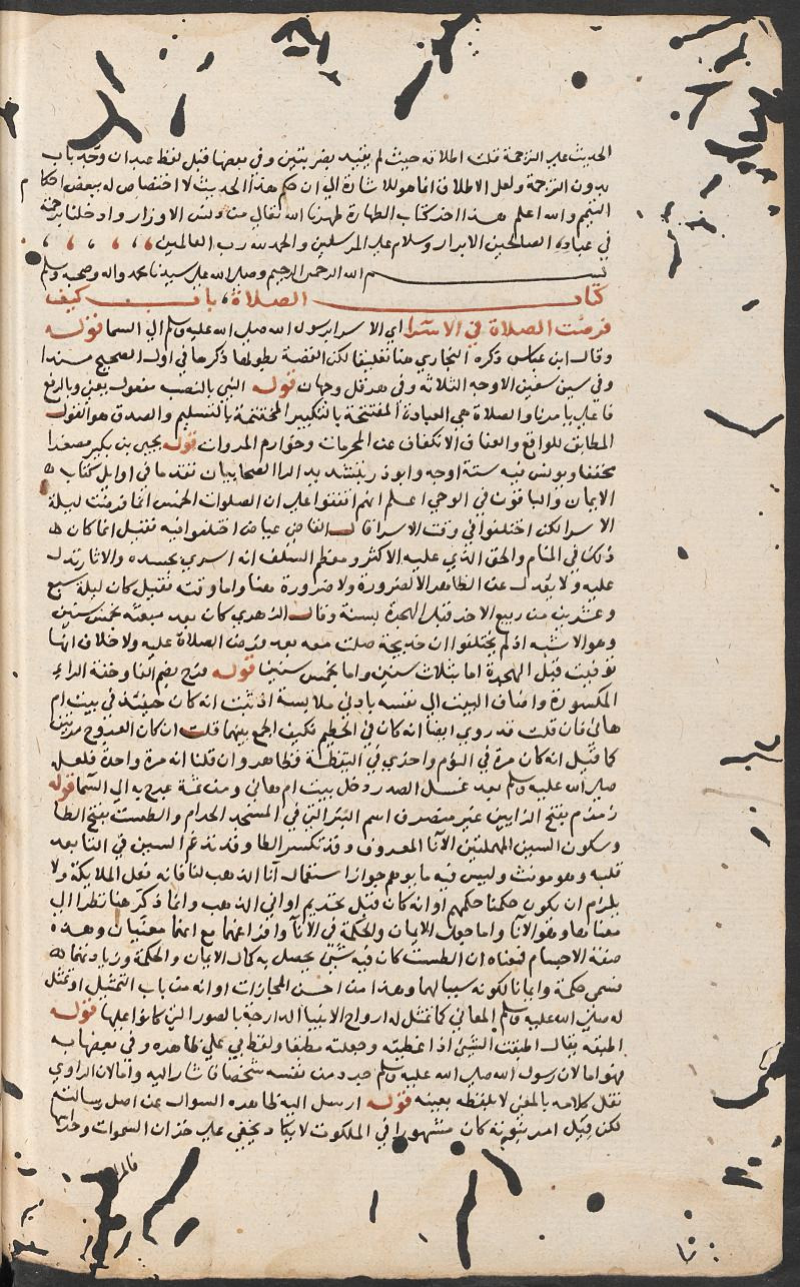 الحديث علي الترجمة قلت اطلاقه حيث لم يقيد بضربتين وفي بعضها قبل لفظ عبدان وجد باب
بدون الترجمة ولعل الاطلاق انما هو للاشارة الي ان حكم هذا الحديث لا اختصاص له ببعض احكا م
التيمم والله اعلم هذا اخر كتاب الطهارة طهرنا الله تعالي من دنس الاوزار وادخلنا برحمته
في عباده الصالحين الابرار وسلام علي المرسلين والحمد لله رب العالمين
بسم الله الرحمن الرحيم وصلي الله علي سيدنا محمد واله وصحبه وسلم
كتاب الصلاة، باب كيف
فرضت الصلاة في الاسرا اي الاسرا برسول الله صلي الله عليه وسلم الي السما قوله
وقال ابن عباس ذكره البخاري هنا تعليقا لكن القصة بطولها ذكرها في اول الصحيح مسندا
وفي سين سفين الاوجه الثلاثه وفي هرقل وجهان قوله النبي بالنصب مفعول يعني وبالرفع
فاعل يامرنا والصلاة هي العبادة المفتتحة بالتكبير المختتمة بالتسليم والصدق هو القول
المطابق للواقع والعفاف الانكفاف عن المحرمات وخوارم المروات قوله يحيي بن بكير مصغرا
مخففا ويونس فيه ستة اوجه وابو ذر بتشديد الرا الصحابيان تقدما في اوايل كتاب
الايمان والباقون في الوحي اعلم انهم اتفقوا علي ان الصلوات الخمس انما فرضت ليلة
الاسرا لكن اختلفوا في وقت الاسرا قال القاضي عياض اختلفوا فيه فقيل انما كان
ذلك في المنام والحق الذي عليه الاكثر ومعظم السلف انه اسري بجسده والاثار تدل
عليه ولا يعدل عن الظاهر الا لضرورة ولا ضرورة هنا واما وقته فقيل كان ليلة سبع
وعشرين من ربيع الاخر قبل الهجرة بسنة وقال الزهري كان بعد مبعثه بخمس سنين
وهو الاشبه اذ لم يختلفوا ان خديجة صلت معه بعد فرض الصلاة عليه ولا خلاف انها
توفيت قبل الهجرة اما بثلاث سنين واما بخمس سنين قوله فرج بضم الفا وخفة الراء
المكسورة واضاف البيت الي نفسه بادني ملابسة اذ ثبت انه كان حينئذ في بيت ام
هاني فان قلت قد روي ايضا انه كان في الحطيم فكيف الجمع بينهما قلت ان كان العروج مرتين
كما قيل انه كان مرة في النوم واخري في اليقظة فظاهر وان قلنا انه مرة واحدة فلعله
صلي الله عليه وسلم بعد غسل الصدر دخل بيت ام هاني ومن ثمة عرج به الي السما قوله
زمزم بفتح الزايين غير منصرف اسم البئر التي في المسجد الحرام والطست بفتح الطا
وسكون السين المهملتين الانا المعروف وقد تكسر الطا وقد تدغم السين في التا بعد
قلبه وهو مونث وليس فيه ما يوهم جواز استعمال انا الذهب لنا فانه فعل الملايكة ولا
يلزم ان يكون حكمنا حكمهم او انه كان قبل تحريم اواني الذهب وانما ذكر هنا نظرا الي
معناها وهو الانا واما جعل الايمان والحكمة في الانا وافراغهما مع انهما معنيان وهذه
صفة الاجسام فمعناه ان الطست كان فيه شي يحصل به كمال الايمان والحكمة وزيادتهما
فسمي حكمة وايمانا لكونه سببا لهما وهذا من احسن المجازات او انه من باب التمثيل او تمثل
له صلي الله عليه وسلم المعاني كما تمثل له ارواح الانبيا الدارجة بالصور التي كانوا عليها قوله
اطبقه يقال اطبقت الشي اذا غطيته وجعلته مطبقا ولفظ بي علي ظاهره وفي بعضها به
فهو اما لان رسول الله صلي الله عليه وسلم جرد من نفسه شخصا فاشار اليه واما لان الراوي
نقل كلامه بالمعني لا بلفظه بعينه قوله ارسل اليه ظاهره السوال عن اصل رسالته
لكن قيل امر نبوته كان مشهورا في الملكوت لا يكاد يخفي علي خزان السموات وحراسها